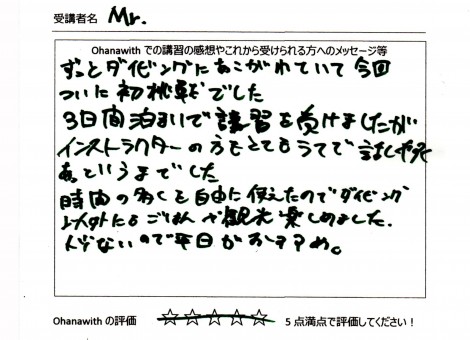 受講者名 Mr.
Ohanawith での講習の感想やこれから受けられる方へのメッセージ等
ずっとダイビングにあこがれていて今回
ついに初挑戦でした
3日間泊まりで講習を受けましたが
インストラクターの方もとても
あっというまでした
時間の多くを自由に使えたのでダイビング
以外にもごはんや観光楽しめました.
人少ないので平日がおすすめ。
Ohanawith の評価 ☆☆☆☆☆ 5 点満点で評価してください！